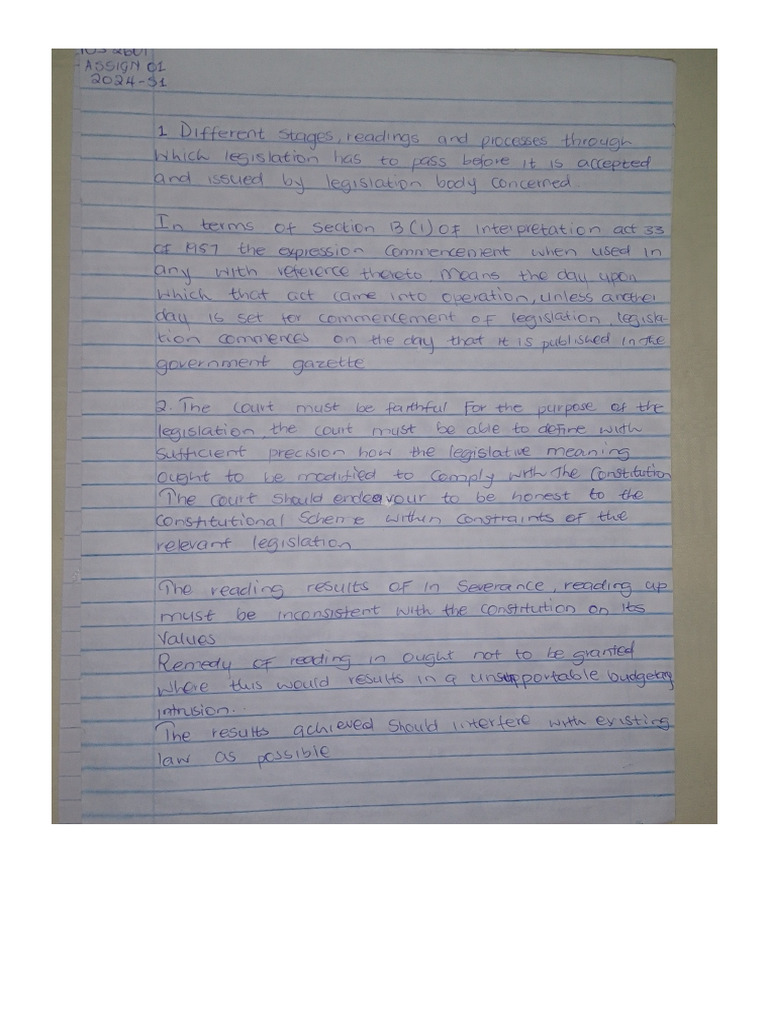 IOS 2601
ASSIGN 01
2024-S1
1 Different stages, readings and processes through
which legislation has to pass before it is accepted
and issued by legislation body concerned.
In terms of section 13(1) of Interpretation act 33
of 1957 the expression commencement when used in
any with reference thereto, means the day upon
which that act came into operation, unless another
day is set for commencement of legislation, legisla-
tion commences on the day that it is published in the
government gazette
2. The court must be faithful for the purpose of the
legislation, the court must be able to define with
sufficient precision how the legislative meaning
ought to be modified to comply with the Constitution
The court should endeavour to be honest to the
constitutional scheme within constraints of the
relevant legislation
The reading results of in severance, reading up
must be inconsistent with the constitution on its
values
Remedy of reading in ought not to be granted
where this would results in a unsupportable budgetary
intrusion..
The results achieved should interfere with existing
law as possible